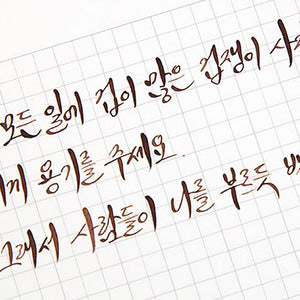 모든 일에 겁이 많은 겁쟁이
용기를 주세요.
그래서 사람들이 나를 부르듯